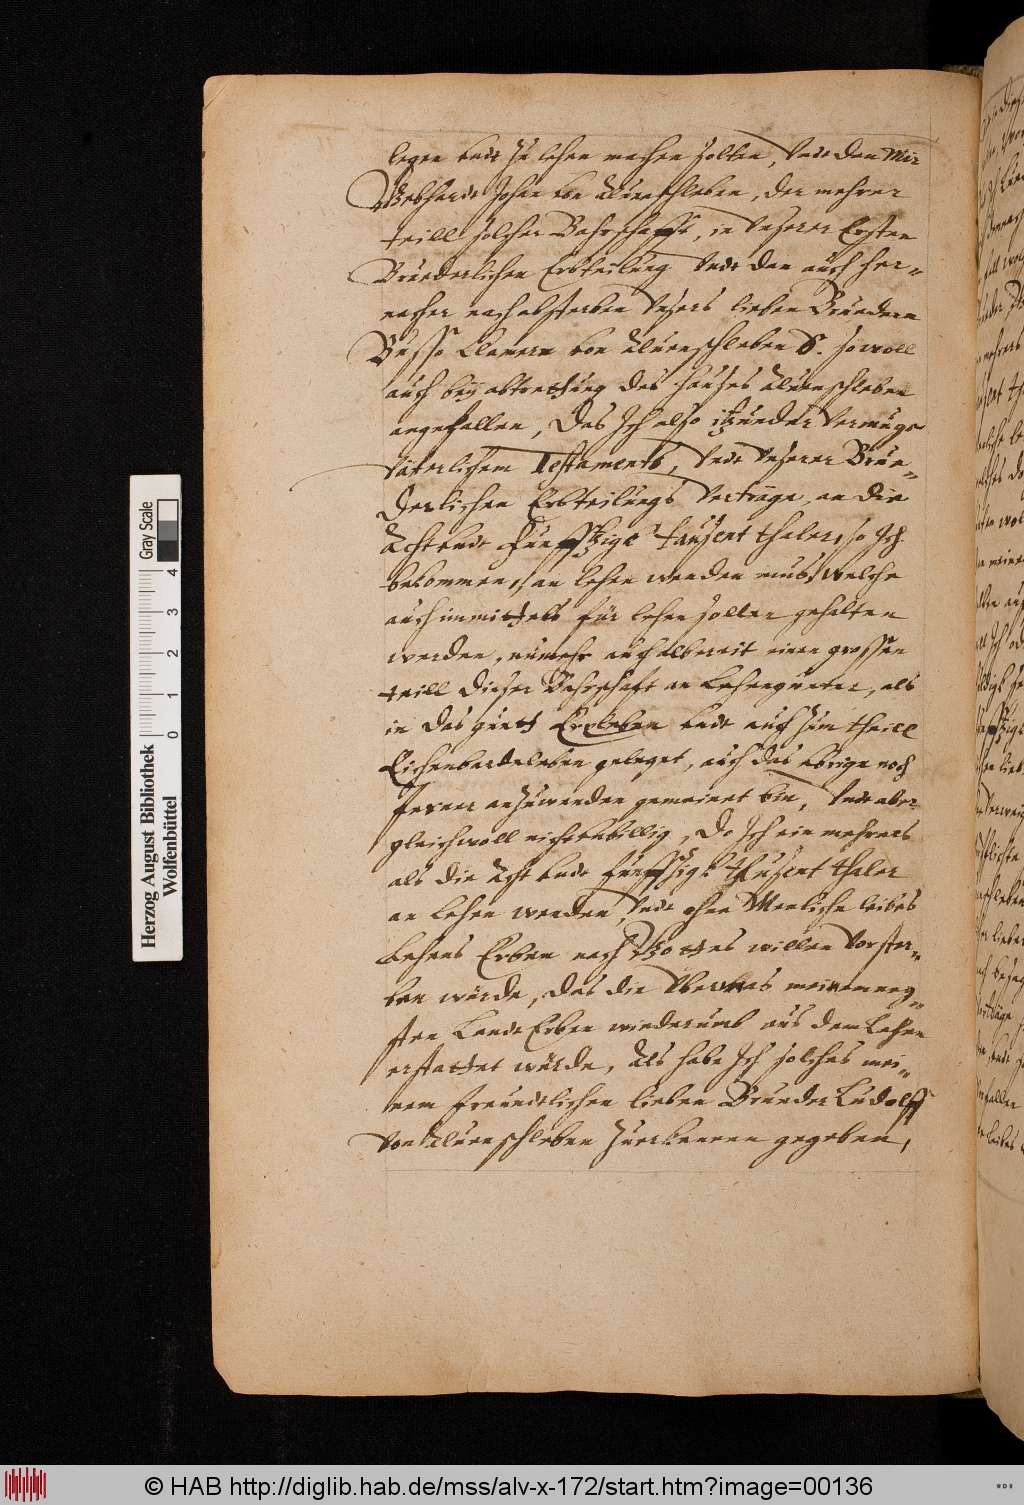 legen vndt zu lehen machen solten, Vndt dan Mir
Gebhardt Johan von Aluenschleben, der mehrer
teill solcher Bahrschafft, in Vnserer Ersten
Brüederlichen Erbteilung Vndt dan auch her-
nacher nach absterben Vnsers lieben Brüedern
Busso Clamern von Aluenschleben S. sowoll
auch bey abtrettung des Hauses Aluenschleben
angefallen, Das Ich also itzunder Vermüge
Väterlichem Testaments, Vndt Vnserer Brüe-
derlichen Erbteilungs Verträge, an die
Acht vndt Fünfftzigk tausent thaler, so Ich
bekommen, an lehen wenden mus, welche
auch immittels für lehen sollen gehalten
werden, nunmehr auch albereit einen grossen
teill dieser Bahrschaft an Lehengüeter, als
in das guett Erxleben vndt auch zum theill
Eichenbardeleben geleget, auch das übrige noch
ferner anzuwenden gemeinet bin, Vndt aber
gleichwoll nicht vnbillig, Do Ich ein mehrers
als die Acht vndt Fünfftzigk thusent thaler
an Lehen wenden, Vndt ohne Menliche leibes
Lehens Erben nach Gottes willen Vorster-
ben würde, das die Vbermas meinem neg-
sten Landt Erben wiederumb aus dem Lehen
erstattet würde, Als habe Ich solches mei-
nem freundtlichen lieben Brueder Ludolff
Von Aluenschleben zuerkennen gegeben,
Gray Scale
4 3 2 1 0
Herzog August Bibliothek
Wolfenbüttel
© HAB http://diglib.hab.de/mss/alv-x-172/start.htm?image=00136